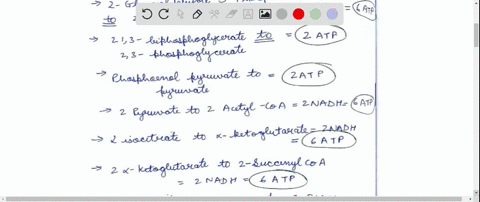 → 2-Gl
to 2 = 6 ATP
→ 2 1,3- biphosphoglycerate to = 2 ATP
2,3- phosphoglycerate
→ Phosphoenol pyruvate to = 2 ATP
pyruvate
→ 2 Pyruvate to 2 Acetyl-CoA = 2 NADH = 6 ATP
→ 2 isocitrate to α- ketoglutarate = 2 NADH
= 6 ATP
→ 2 α-ketoglutarate to 2-Succinyl CoA
= 2 NADH = 6 ATP